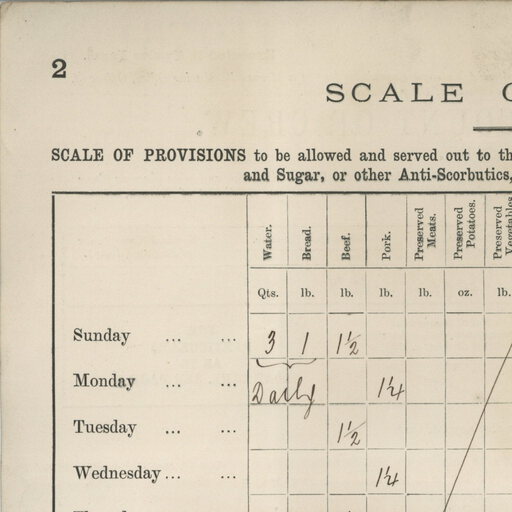 2
SCALE
SCALE OF PROVISIONS to be allowed and served out to th
and Sugar, or other Anti-Scorbutics,
Water. Bread. Beef. Pork. Preserved Meats. Preserved Potatoes. Preserved Vegetables
Qts. lb. lb. lb. lb. oz. lb.
Sunday ... ... 3 1 1½
Monday ... ... Daily 1¼
Tuesday ... ... 1½
Wednesday ... ... 1¼